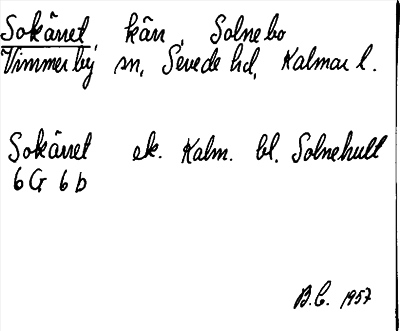 Sokärret, kärr, Solnebo
Vimmerby sn, Sevede hd, Kalmar l.
Sokärret ek. Kalm. bl. Solnehult
6 G 6 b
B.C. 1957